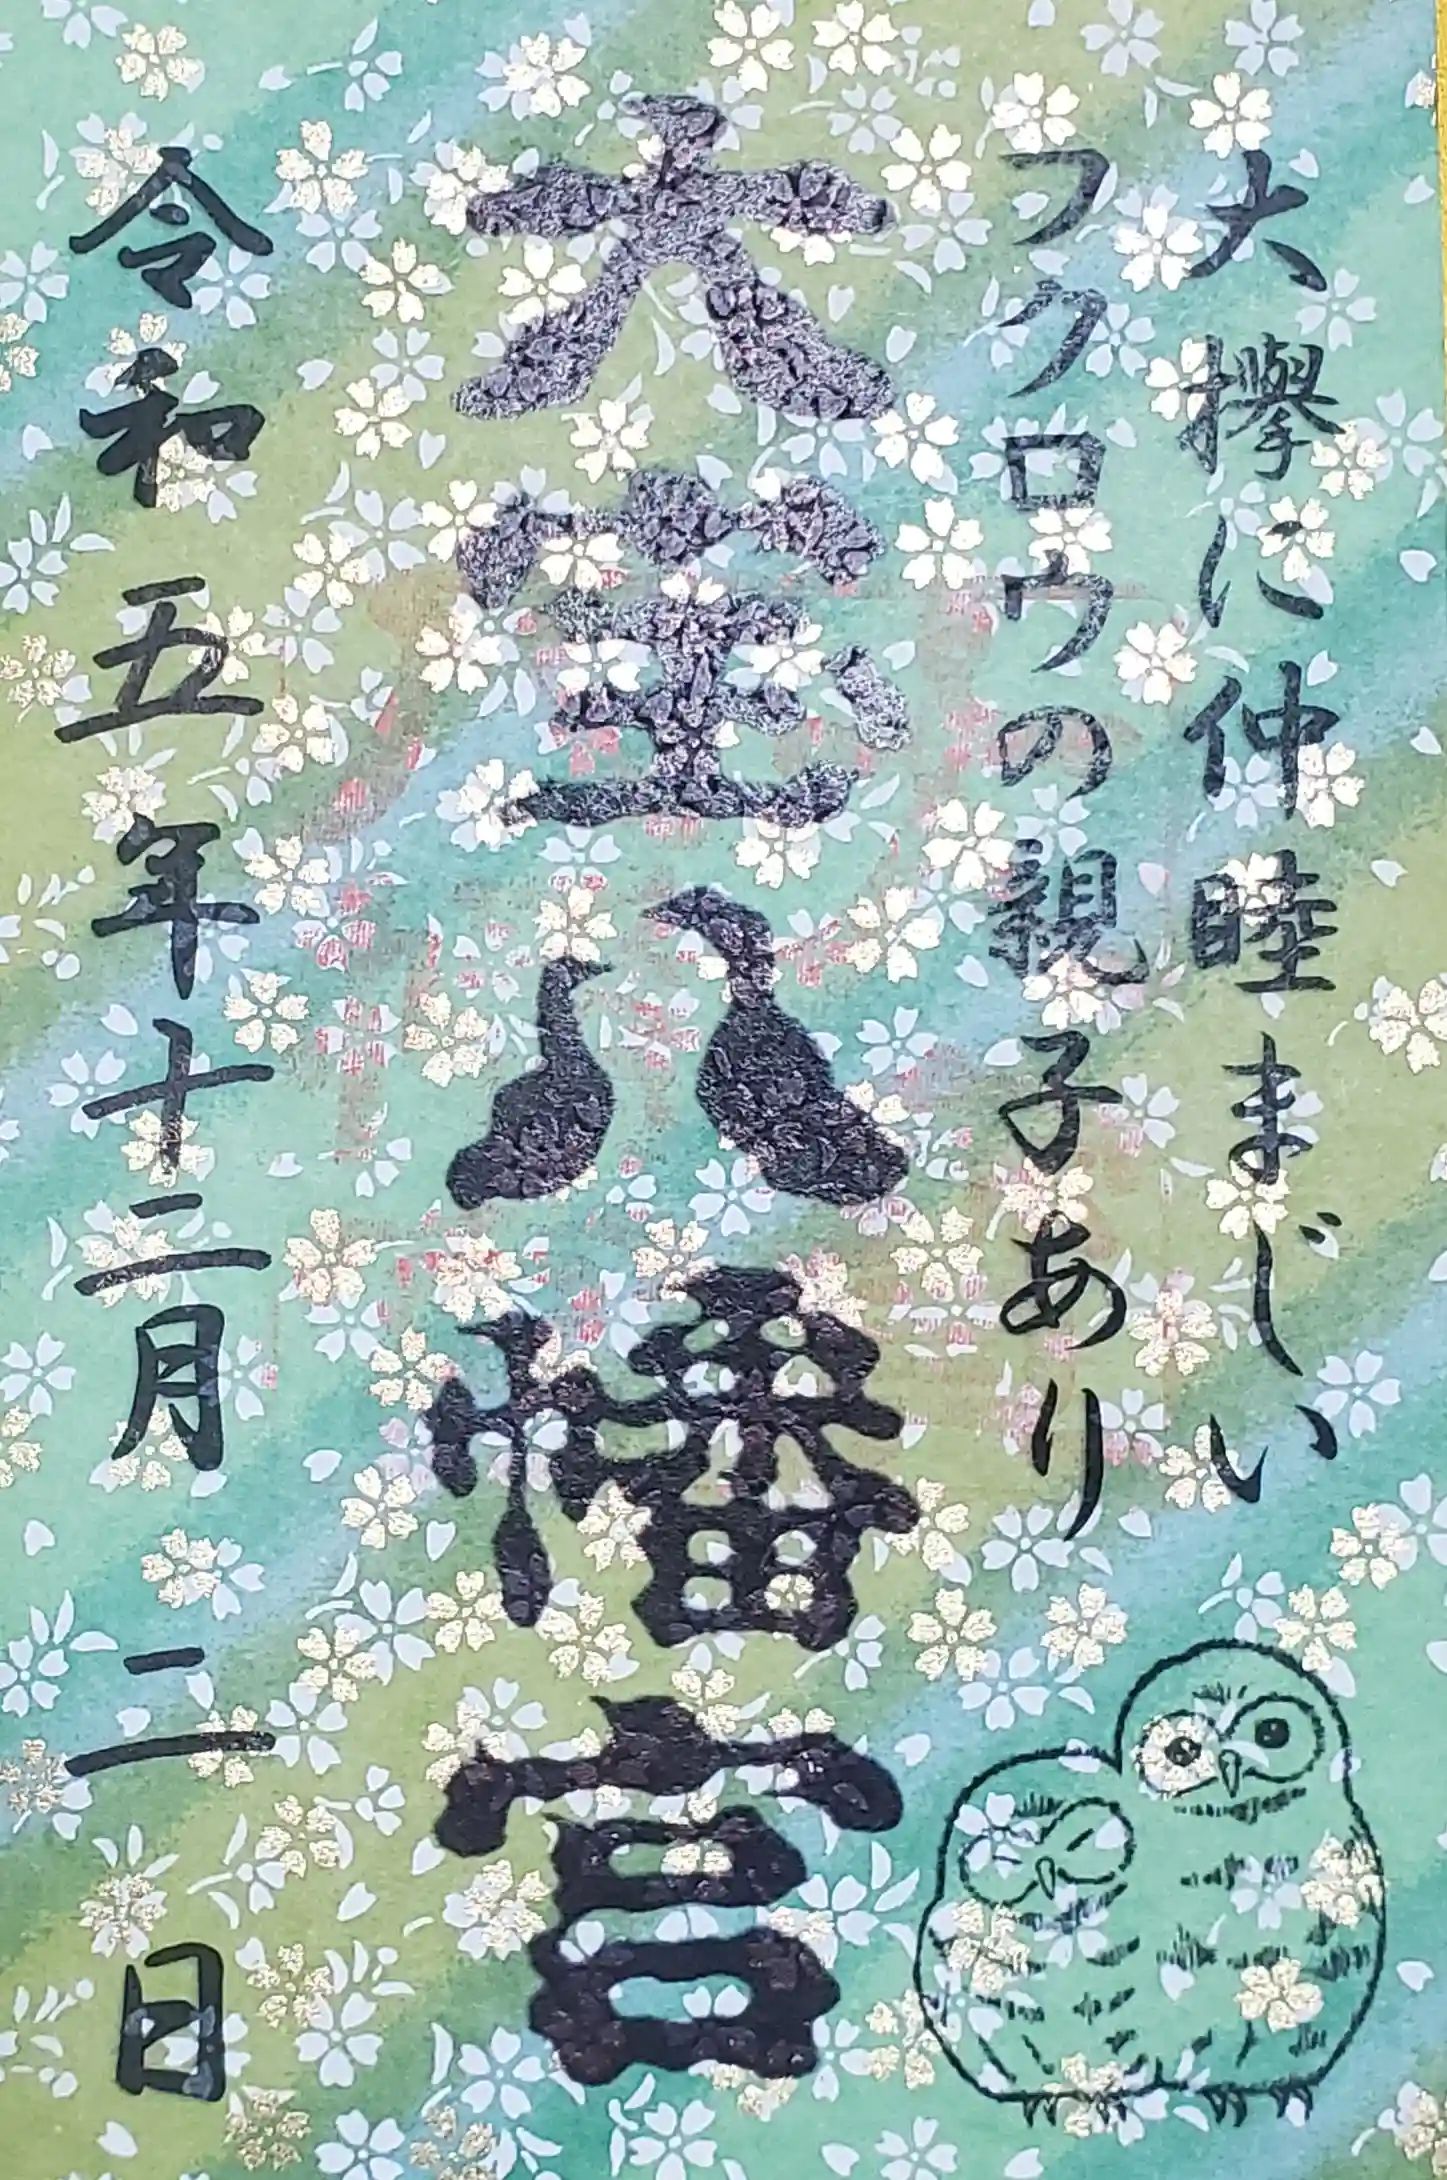 大欅に仲睦まじい
フクロウの親子あり
大宝八幡宮
令和五年十二月二日